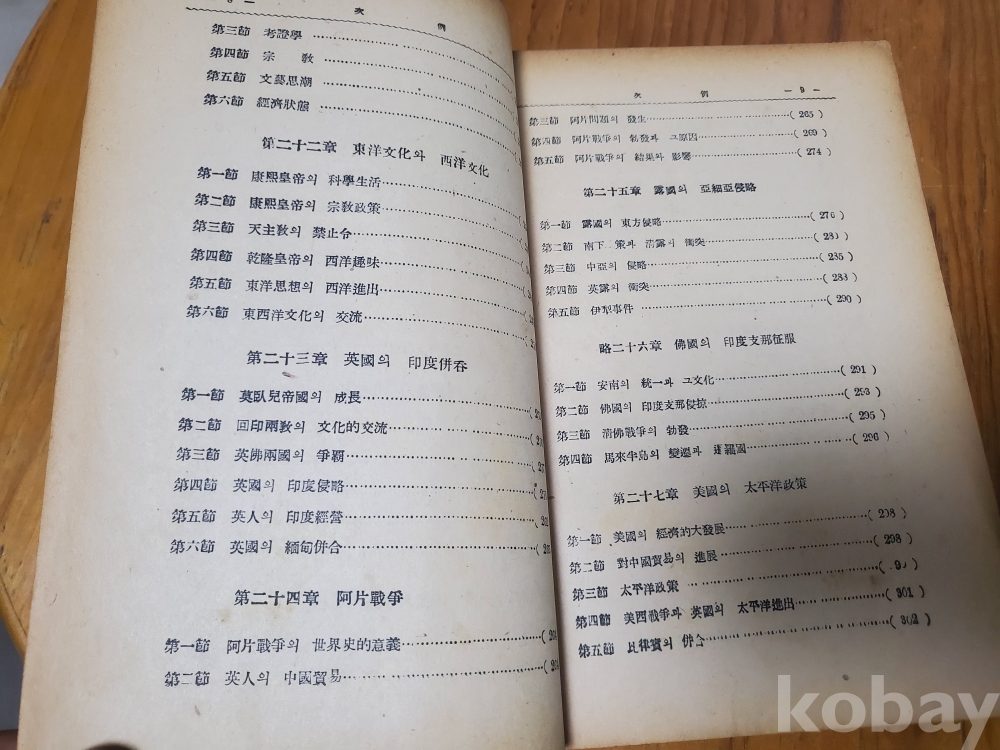 次 例
第三節 考證學
第四節 宗 敎
第五節 文藝思潮
第六節 經濟狀態
第二十二章 東洋文化와 西洋文化
第一節 康熙皇帝의 科學生活
第二節 康熙皇帝의 宗敎政策
第三節 天主敎의 禁止令
第四節 乾隆皇帝의 西洋趣味
第五節 東洋思想의 西洋進出
第六節 東西洋文化의 交流
第二十三章 英國의 印度倂呑
第一節 莫臥兒帝國의 成長
第二節 回印兩敎의 文化的交流
第三節 英佛兩國의 爭覇
第四節 英國의 印度侵略
第五節 英人의 印度經營
第六節 英國의 緬甸倂合
第二十四章 阿片戰爭
第一節 阿片戰爭의 世界史的意義
第二節 英人의 中國貿易
次 例 — 9 —
第三節 阿片問題의 發生 ( 265 )
第四節 阿片戰爭의 勃發과 그原因 ( 269 )
第五節 阿片戰爭의 結果와 影響 ( 274 )
第二十五章 露國의 亞細亞侵略
第一節 露國의 東方侵略 ( 276 )
第二節 南下 策과 淸露의 衝突
第三節 中亞의 侵略 ( 285 )
第四節 英露의 衝突 ( 288 )
第五節 伊犁事件 ( 290 )
略二十六章 佛國의 印度支那征服
第一節 安南의 統一과 그文化 ( 291 )
第二節 佛國의 印度支那侵掠 ( 293 )
第三節 淸佛戰爭의 勃發 ( 295 )
第四節 馬來半島의 變遷과 暹羅國 ( 296 )
第二十七章 美國의 太平洋政策
第一節 美國의 經濟的大發展 ( 298 )
第二節 對中國貿易의 進展 ( 298 )
第三節 太平洋政策
第四節 美西戰爭과 英國의 太平洋進出 ( 301 )
第五節 比律賓의 倂合 ( 302 )
kobay